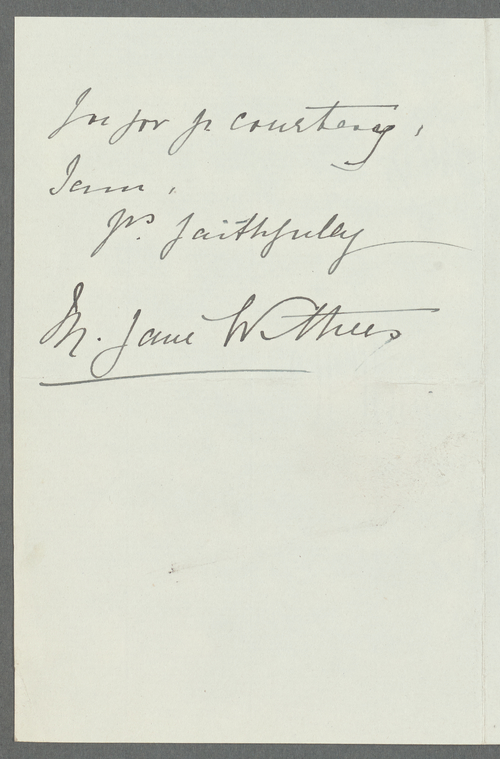 for yr courtesy,
I am,
yrs. faithfully
M. Jane Withers